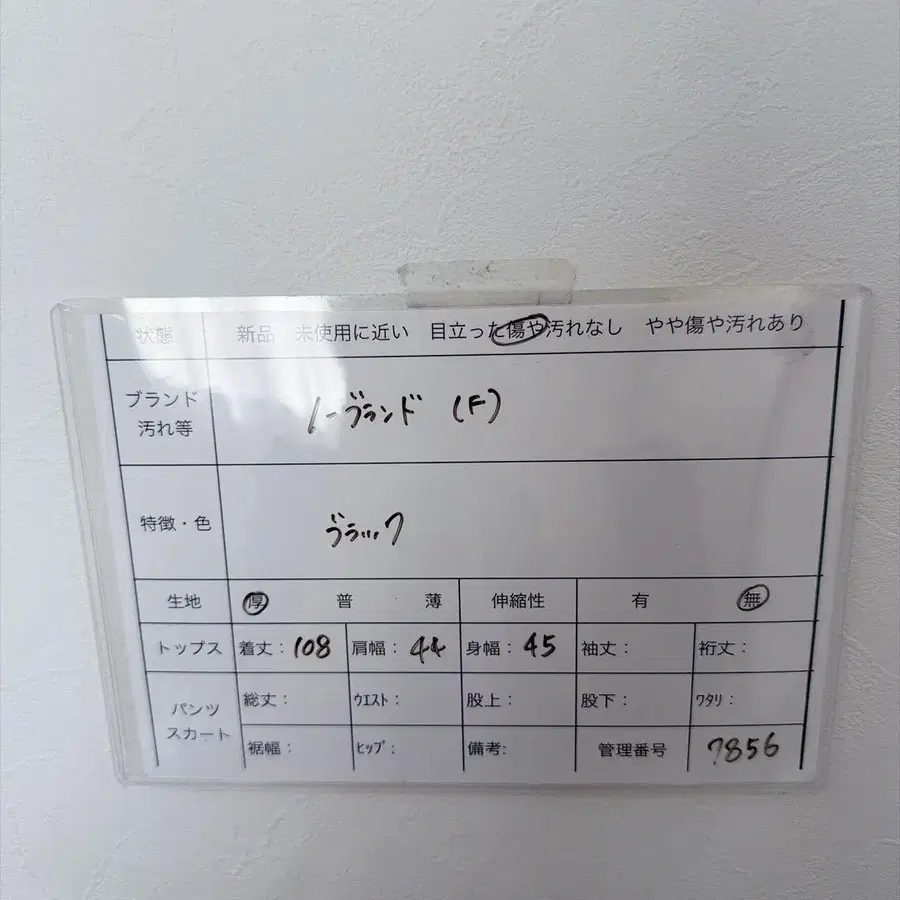 状態 新品 未使用に近い 目立った傷や汚れなし やや傷や汚れあり
ブランド
汚れ等
ノーブランド (F)
特徴・色 ブラック
生地 厚 普 薄 伸縮性 有 無
トップス 着丈:108 肩幅:44 身幅:45 袖丈: 裄丈:
パンツ
スカート
総丈: ウエスト: 股上: 股下: ワタリ:
裾幅: ヒップ: 備考: 管理番号 7856